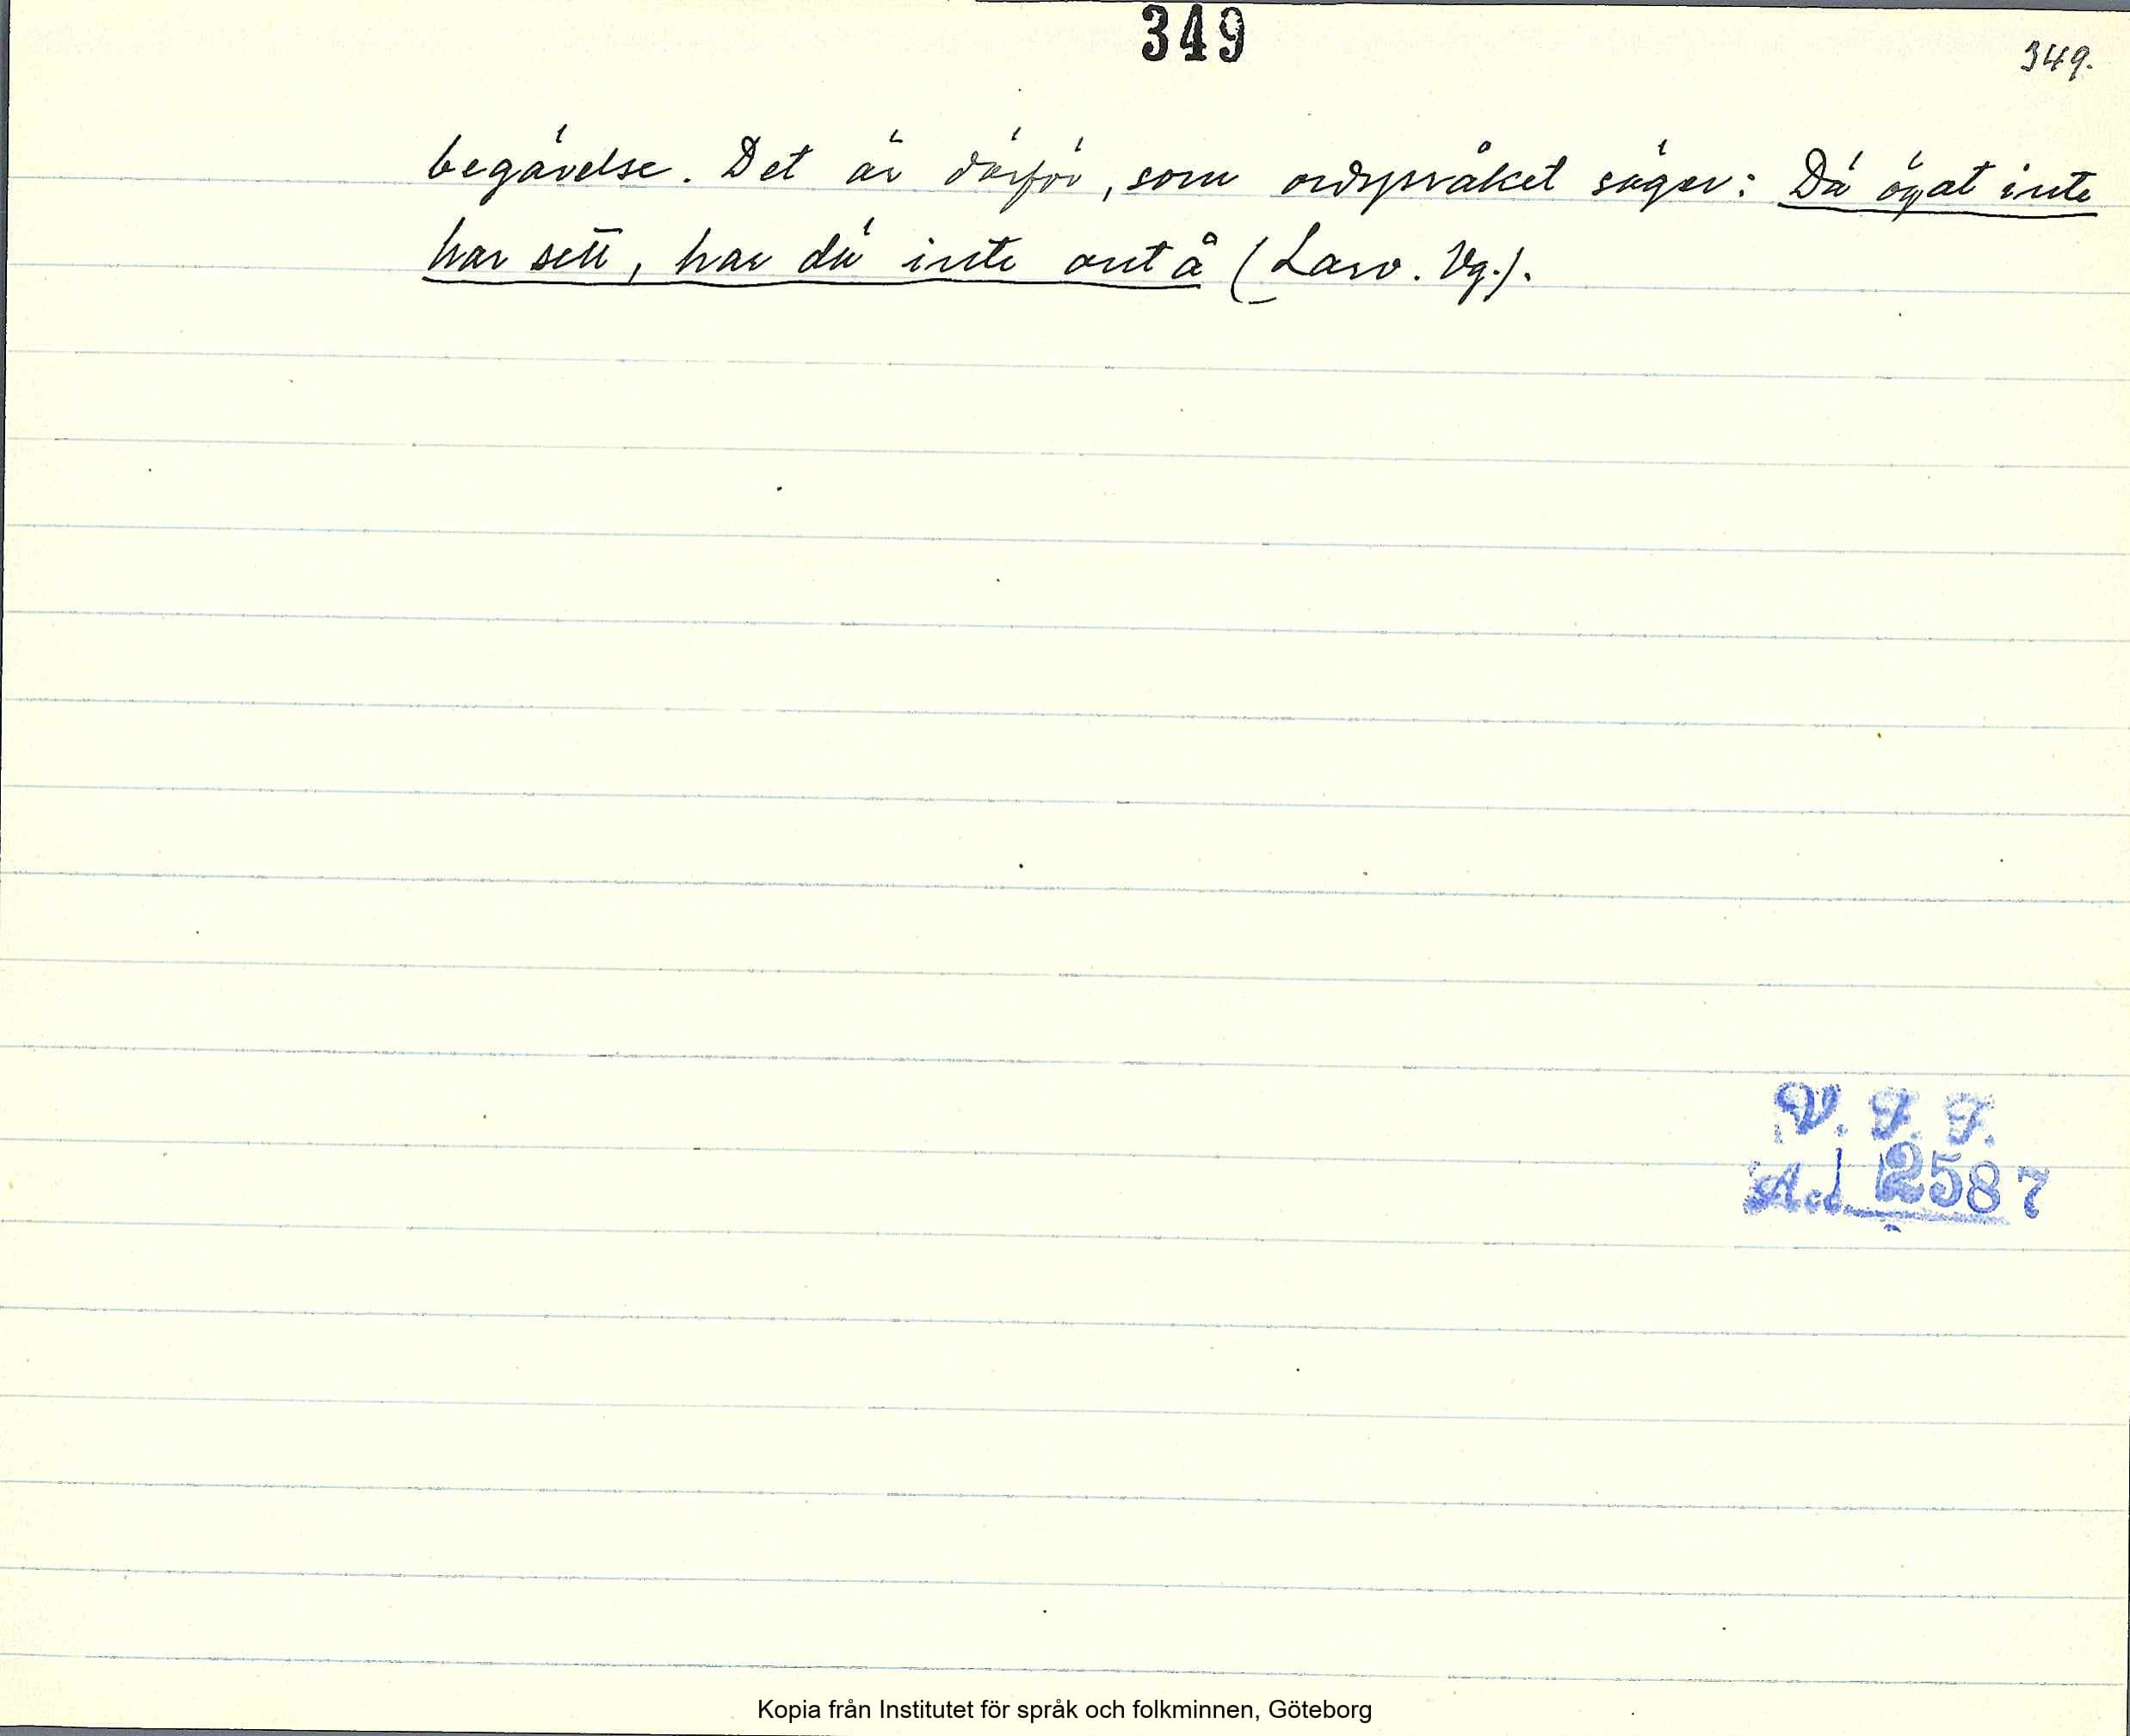 349
349.
begävelse. Det är därför, som ordspråket säger: Dä ögat inte
har sett, har dä inte ont å (Larv. Vg.).
V. F. F.
Acc. 2587
Kopia från Institutet för språk och folkminnen, Göteborg